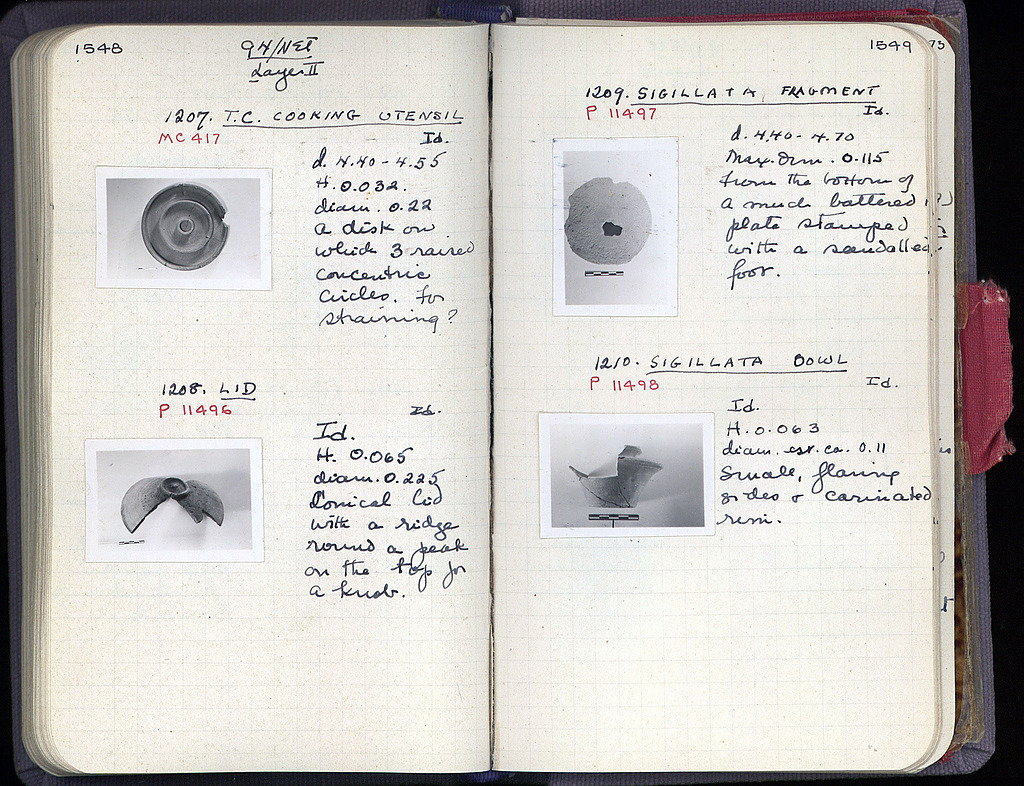 1548
94/NEΓ
Layer II
1207. T.C. COOKING UTENSIL
MC 417
Id.
d. 4.40 - 4.55
H. 0.032.
diam. 0.22
a disk on
which 3 raised
concentric
circles. for
straining?
1208. LID
P 11496
Id.
Id.
H. 0.065
diam. 0.225
Conical lid
with a ridge
round a peak
on the top for
a knob.
1549
75
1209. SIGILLATA FRAGMENT
P 11497
Id.
d. 4.40 - 4.70
Max. dim. 0.115
from the bottom of
a much battered
plate stamped
with a sandalled
foot.
1210. SIGILLATA BOWL
P 11498
Id.
Id.
H. 0.063
diam. est. ca. 0.11
Small, flaring
sides & carinated
rim.